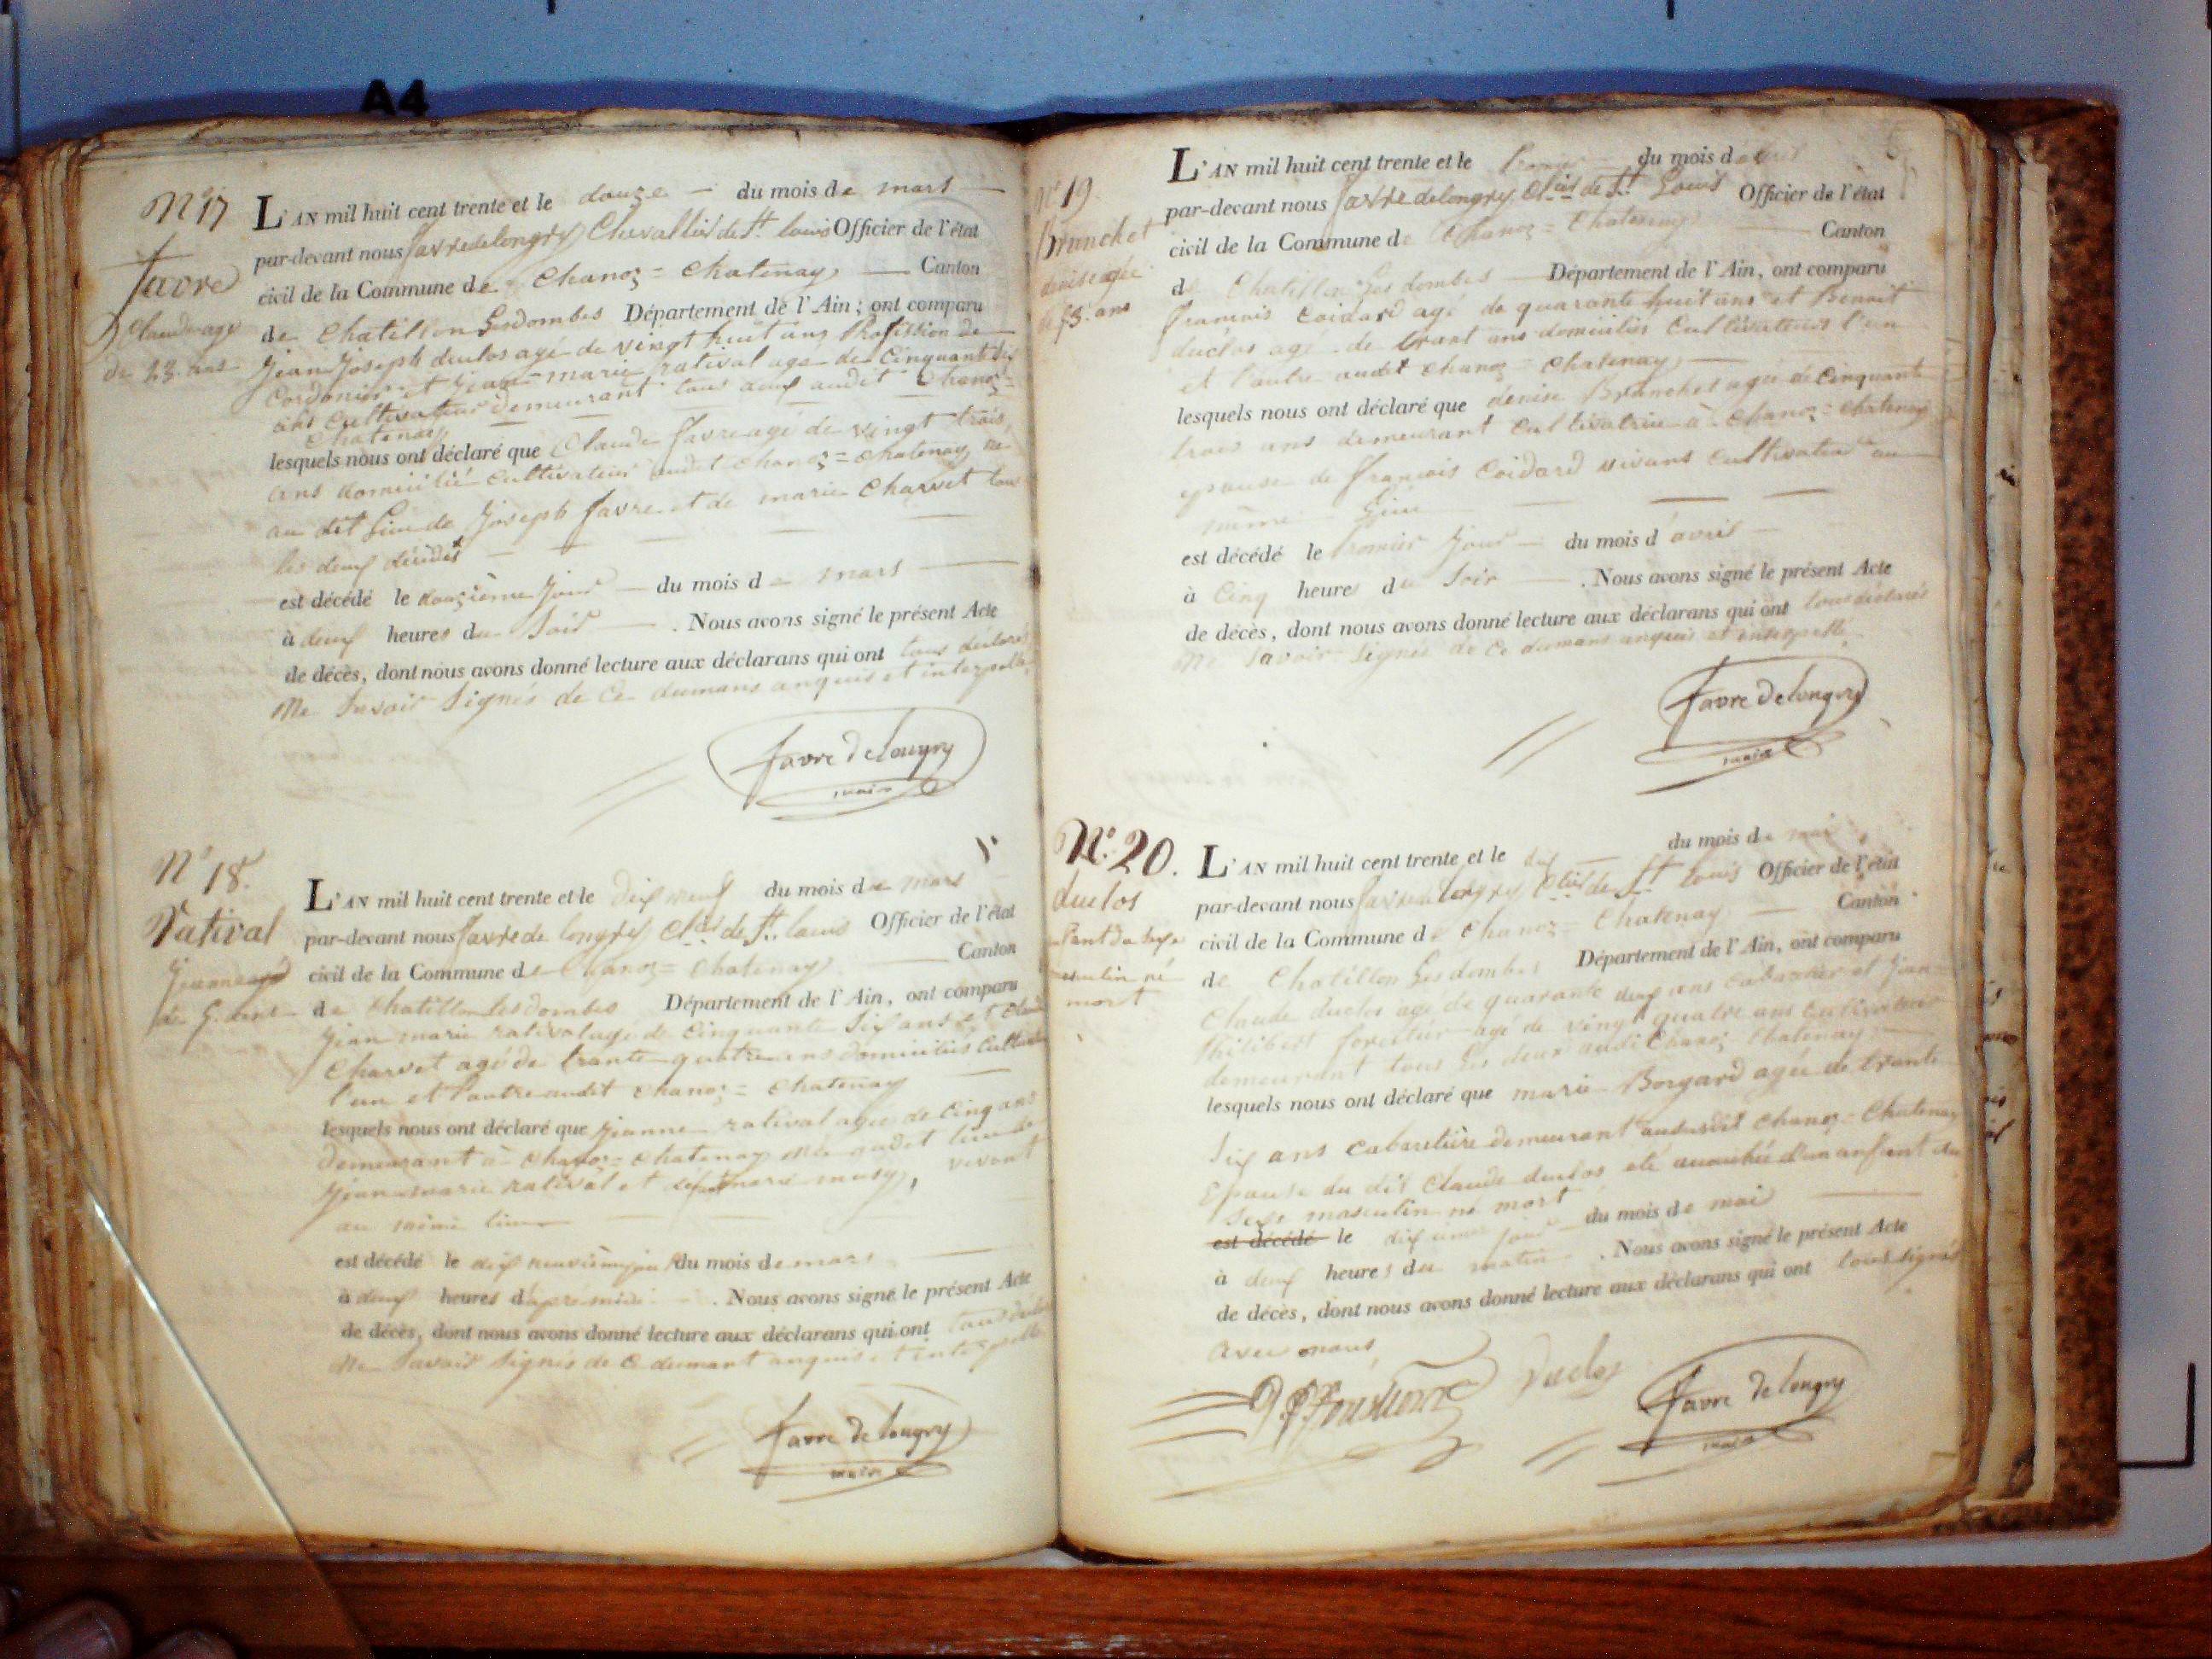 A4
N° 17
Favre
Claude agé
de 23 ans
L'AN mil huit cent trente et le douze du mois de mars
par-devant nous favre delongry Chevallier de St. louis Officier de l'état
civil de la Commune de Chanoz = Chatenay Canton
de Chatillon Lesdombes Département de l'Ain; ont comparu
Jean Joseph duclos agé de vingt huit ans Profession de
Cordonier et Jean marie rativat age de Cinquante six
ans Cultivateur demeurant tous deux audit Chanoz =
Chatenay
lesquels nous ont déclaré que Claude favre age de vingt trois
ans domicilié Cultivateur audit Chanoz = Chatenay né
au dit Lieu de Joseph favre et de marie Charvet tous
les deux décidés
est décédé le douzième Jour du mois de mars
à deux heures du Soir . Nous avons signé le présent Acte
de décès, dont nous avons donné lecture aux déclarans qui ont tous declarés
Ne Savoir Signés de Ce dumans anquis et interpellé
favre Delongry
maire
N° 18.
Rativat
Jeanne agé
de 5. ans
L'AN mil huit cent trente et le Dix neuf du mois de mars
par-devant nous favre de longry Clier de St. louis Officier de l'état
civil de la Commune de Chanoz = Chatenay Canton
de Chatillon Lesdombes Département de l'Ain, ont comparu
Jean marie rativat agé de Cinquante Six ans et Claude
Charvet agé de trante quatre ans dominiliés
l'un et l'autre audit Chanoz = Chatenay
lesquels nous ont déclaré que Jeanne rativat agée de Cinq ans
demeurant à Chanoz = Chatenay audit lieu de
Jean marie rativat et marie musy, vivant
au même lieu
est décédé le dix neuvième jour du mois de mars
à deux heures d'apre midi . Nous avons signé le présent Acte
de décès, dont nous avons donné lecture aux déclarans qui ont tous
Ne Savoir Signés de Ce dumant anquis et interpellé
favre De longry
maire
N° 19.
Branchet
denise agée
de 53. ans
L'AN mil huit cent trente et le Premier du mois d'avril
par-devant nous favre delongry Clier de St. Louis Officier de l'état
civil de la Commune de Chanoz = Chatenay Canton
de Chatillon Les dombes Département de l'Ain, ont comparu
francois Coidard agé de quarante huit ans et Benoit
duclos agé de trant ans domiciliés Cultivateurs l'un
et l'autre audit Chanoz = Chatenay
lesquels nous ont déclaré que denise Branchet agée de Cinquante
trois ans demeurant Cultivatrice à Chanoz = Chatenay
epouse de francois Coidard vivans cultivateur au
même Lieu
est décédé le Premier Jour du mois d'avril
à Cinq heures du Soir . Nous avons signé le présent Acte
de décès, dont nous avons donné lecture aux déclarans qui ont tous declarés
Ne Savoir Signés de Ce dumans anquis et interpellé
favre Delongry
maire
N° 20.
duclos
né
mort
L'AN mil huit cent trente et le dix du mois de mai
par-devant nous favre de longry Clier de St. louis Officier de l'état
civil de la Commune de Chanoz = Chatenay Canton
de Chatillon Les dombes Département de l'Ain, ont comparu
Claude duclos agé de quarante deux ans cabaretier et Jean
Philibert agé de vingt quatre ans Cultivateur
demeurant tous Les deux audit Chanoz Chatenay
lesquels nous ont déclaré que marie Borgard agée de trante
Six ans Cabaretière demeurant aususdit Chanoz = Chatenay
Epouse du dit Claude duclos eté acouchée d'un anfant du
Sexe masculin né mort
est décédé le dixième jour du mois de mai
à deux heures du matin . Nous avons signé le présent Acte
de décès, dont nous avons donné lecture aux déclarans qui ont tous signés
avec nous
Duclos
favre De longry
maire